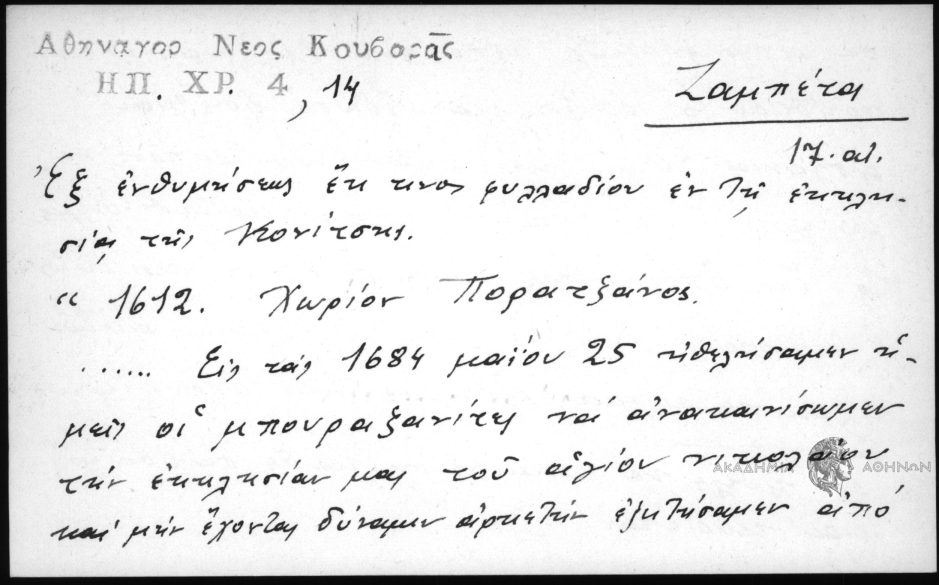 Αθηναγορ Νεος Κουβαρᾶς
ΗΠ. ΧΡ. 4, 14
Ζαμπέτα
17. αἰ.
Ἐξ ἐνθυμήσεως ἔκ τινος φυλλαδίου ἐν τῇ ἐκκλη-
σίᾳ τῆς Κονίτσης.
“ 1612. Χωρίον Πορατζάνος.
...... Εἰς τάς 1684 μαΐου 25 ἠθελήσαμεν ἡ-
μεῖς οἱ μπουραζανίτες νά ἀνακαινίσωμεν
τήν ἐκκλησίαν μας τοῦ ἁγίου νικολάου
καί μήν ἔχοντας δύναμιν ἀρκετήν ἐζητήσαμεν ἀπό
ΑΚΑΔΗΜΙΑ ΑΘΗΝΩΝ